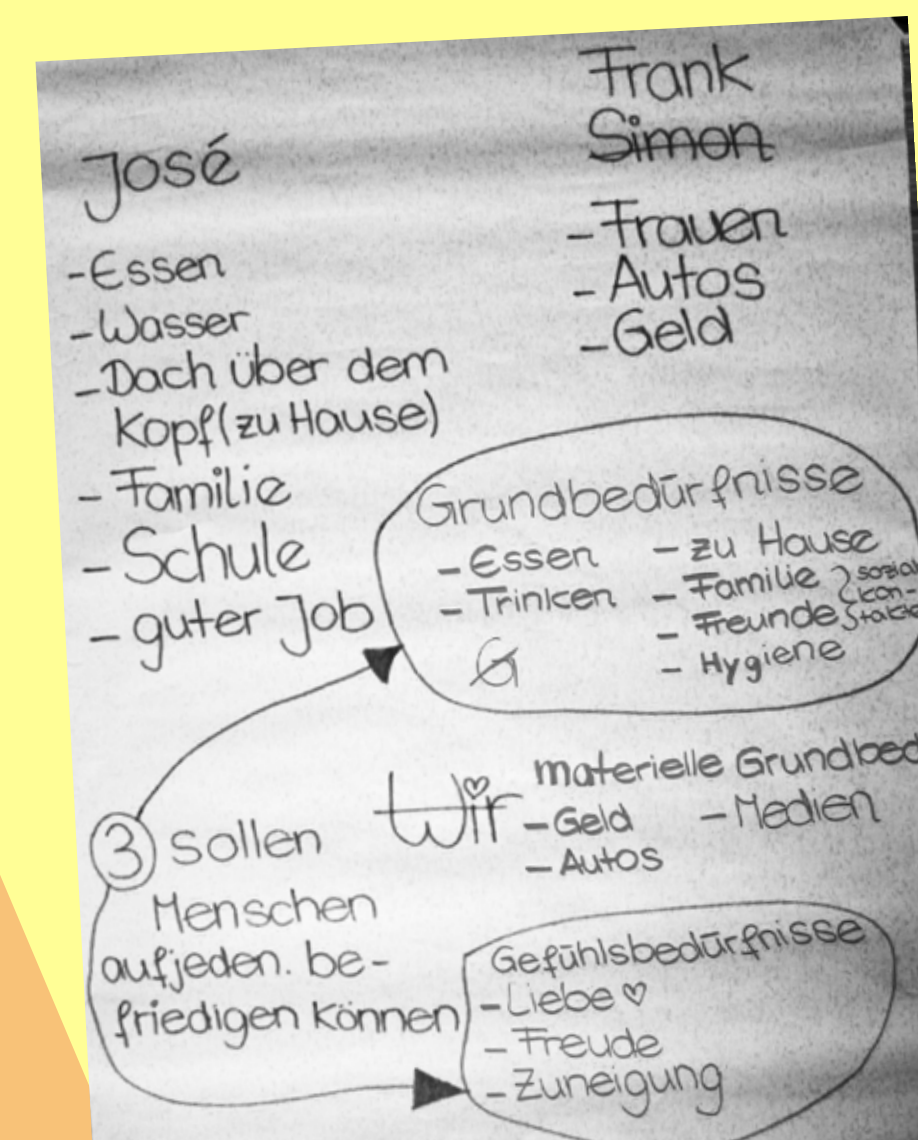 José
-Essen
-Wasser
-Dach über dem
Kopf (zu Hause)
- Familie
- Schule
- guter Job
Frank
Simon
-Frauen
-Autos
-Geld
Grundbedürfnisse
-Essen
-Trinken
G
- zu Hause
- Familie
- Freunde
- Hygiene
sozial
kon-
takte
Wir
materielle Grundbed
-Geld
-Autos
-Medien
3 sollen
Menschen
aufjeden. be-
friedigen können
Gefühlsbedürfnisse
-Liebe ♡
-Freude
-Zuneigung